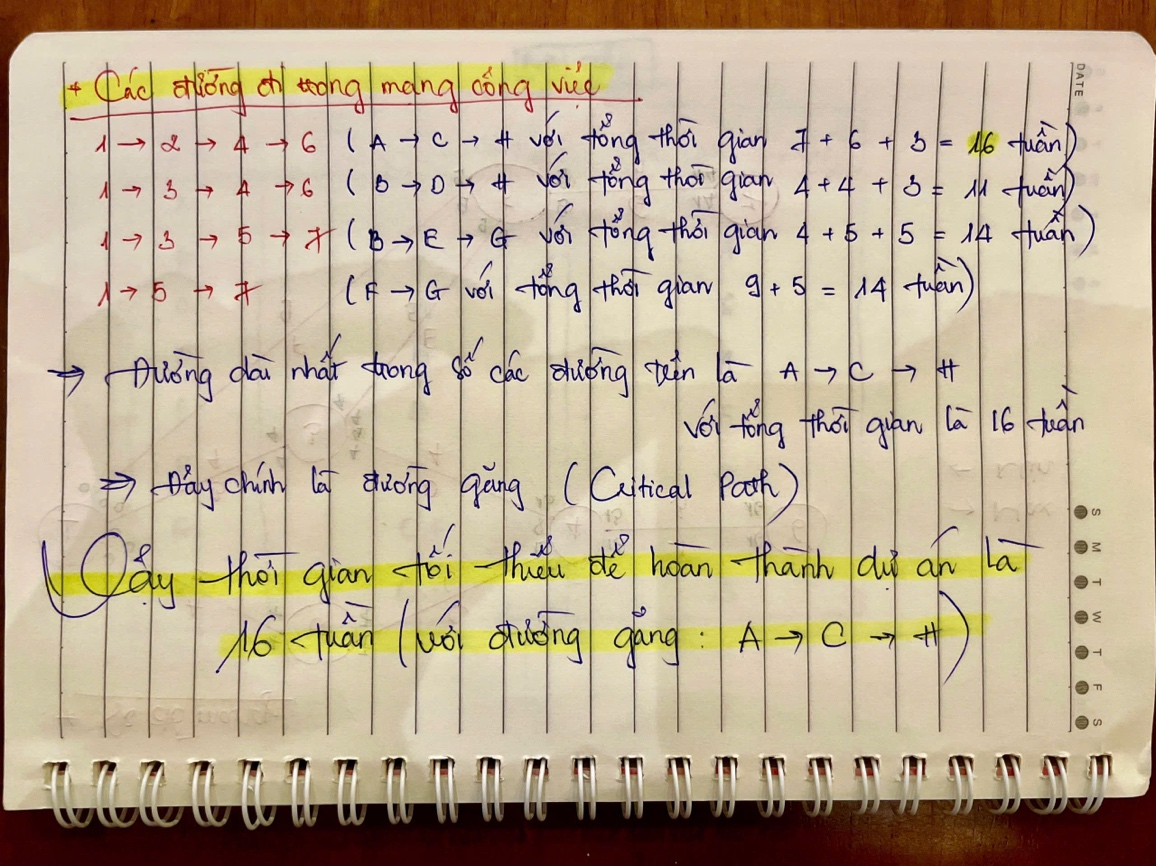 * Các đường đi trong mạng công việc
1 → 2 → 4 → 6 ( A → C → H với tổng thời gian 7 + 6 + 3 = 16 tuần)
1 → 3 → 4 → 6 ( B → D → H với tổng thời gian 4 + 4 + 3 = 11 tuần)
1 → 3 → 5 → 7 ( B → E → G với tổng thời gian 4 + 5 + 5 = 14 tuần)
1 → 5 → 7 ( F → G với tổng thời gian 9 + 5 = 14 tuần)
⇒ Đường dài nhất trong số các đường trên là A → C → H
với tổng thời gian là 16 tuần
⇒ Đây chính là đường găng ( Critical Path )
Vậy thời gian tối thiểu để hoàn thành dự án là
16 tuần ( với đường găng : A → C → H )
DATE
S M T W T F S